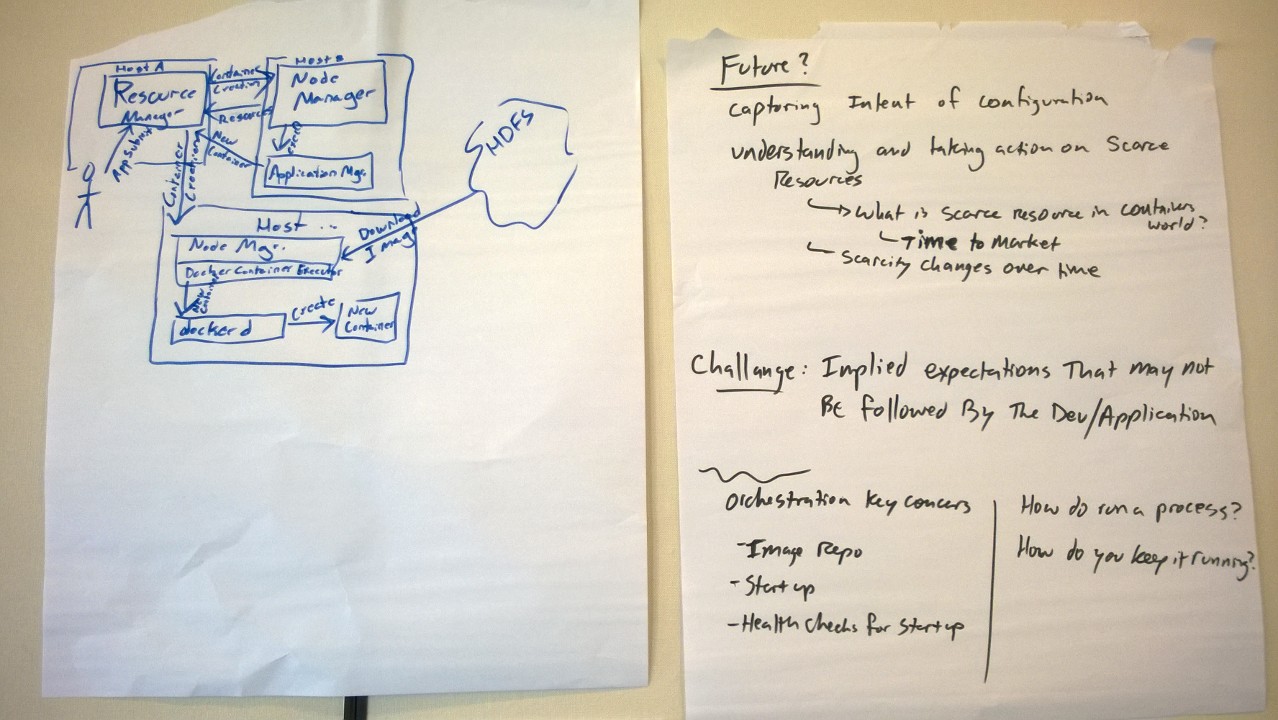 Host A
Resource
Manager
App Submit
Container
Creation
Resources
New
Container
Host B
Node
Manager
Exec
Application Mgr.
Container
Creation
HDFS
Download
Image
Host ...
Node Mgr.
Docker Container Executor
New
Container
dockerd
Create
New
Container
Future?
capturing Intent of configuration
understanding and taking action on Scarce
Resources
What is scarce resource in containers
world?
Time to market
Scarcity changes over time
Challange: Implied expectations That may not
BE followed By The Dev/Application
Orchestration key concers
- Image Repo
- Startup
- Health checks for startup
How do run a process?
How do you keep it running?